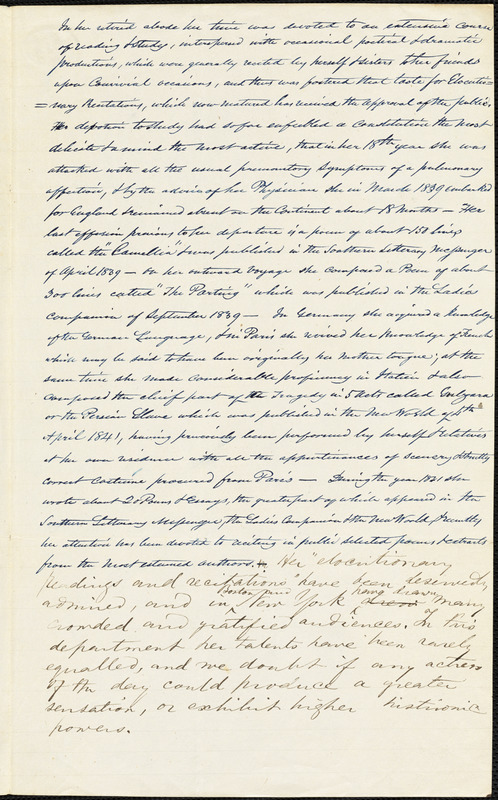 In her retired abode her time was devoted to an extensive course
of reading & study, interspersed with occasional poetical & dramatic
productions, which were generally recited by herself & sisters to her friends
upon Convivial occasions, and thus was fostered that taste for Elocutio=
=nary Recitations, which now matured has received the approval of the public.
Her devotion to study had so far enfeebled a Constitution the most
delicate & a mind the most active, that in her 18th year she was
attacked with all the usual premonitory symptoms of a pulmonary
affection, & by the advice of her Physician she in March 1839 embarked
for England & remained about on the Continent about 18 Months — Her
last effusion previous to her departure is a poem of about 150 lines
called the "Camellia" & was published in the Southern Literary Messenger
of April 1839 — On her outward Voyage she composed a Poem of about
300 lines called "The Parting" which was published in the Ladies
Companion of September 1839 — In Germany she acquired a knowledge
of the German Language, & in Paris she revived her Knowledge of French
which may be said to have been originally her Mother tongue; at the
same time she made considerable proficiency in Italian & also
Composed the chief part of the Tragedy in 5 Acts called Gulzara
or the Persian Slave which was published in the New World of
April 1841, having previously been performed by herself & relatives
at her own residence with all the appurtenances of scenery & strictly
correct Costume procured from Paris — During the year 1841 she
wrote about 20 Poems & Essays, the greater part of which appeared in the
Southern Literary Messenger, the Ladies Companion & the New World & recently
her attention has been devoted to reciting in public selected poems & extracts
from the most esteemed authors. Her "elocutionary
readings and recitations" have been deservedly
Boston and have drawn
admired, and in New York drew many
crowded and gratified audiences. In this
department her talents have been rarely
equalled, and we doubt if any actress
of the day could produce a greater
sensation, or exhibit higher histrionic
powers.